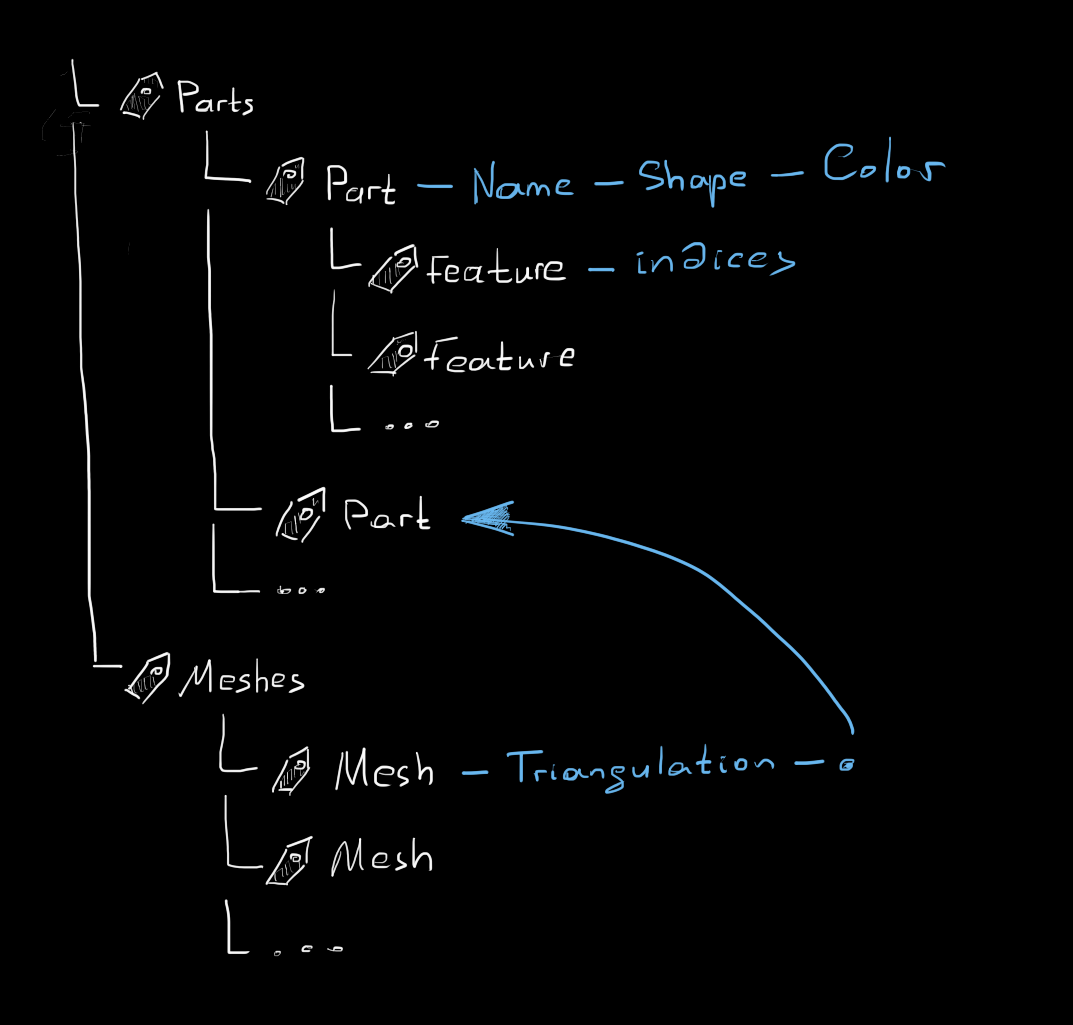 Parts
Part - Name - Shape - Color
Feature - indices
Feature
...
Part
...
Meshes
Mesh - Triangulation -
Mesh
...